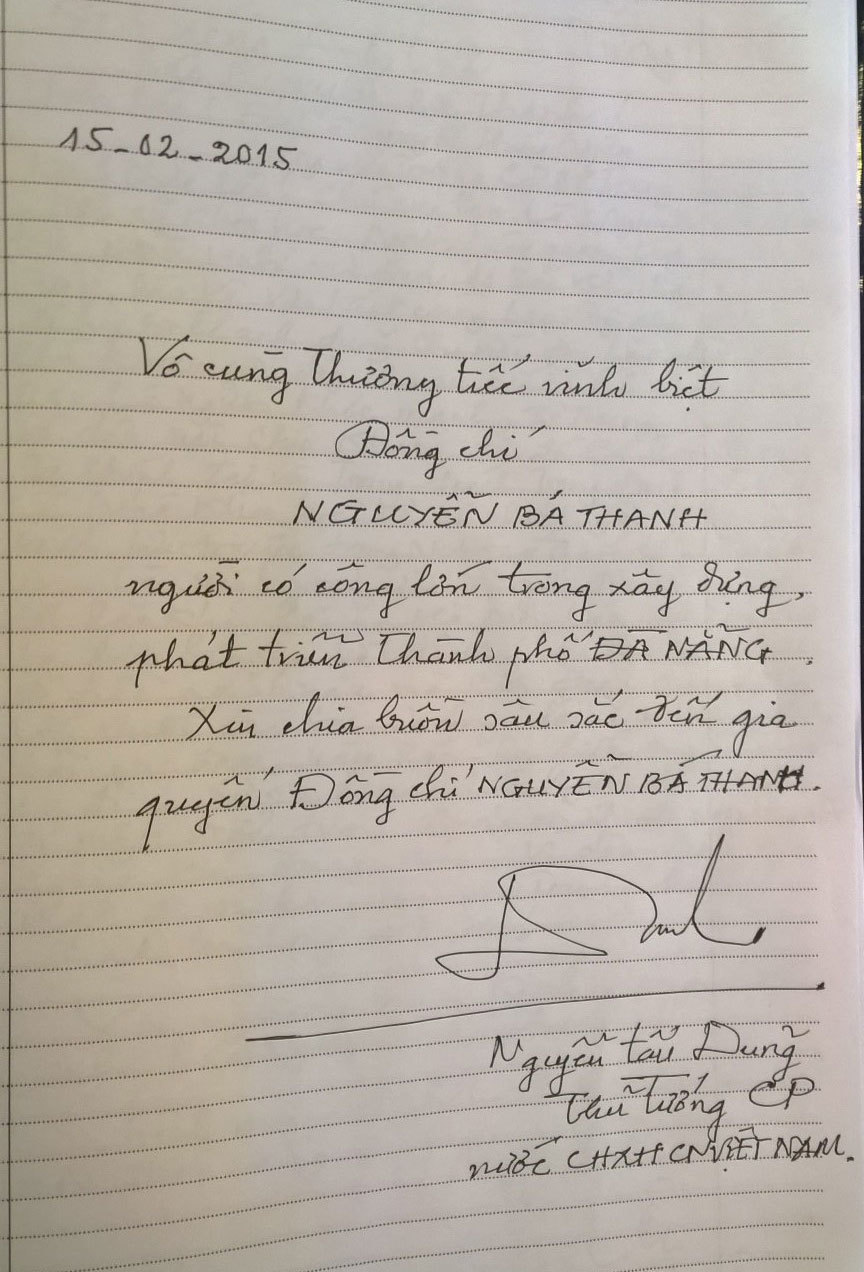 15-02-2015
Vô cùng thương tiếc vĩnh biệt
Đồng chí
NGUYỄN BÁ THANH
người có công lớn trong xây dựng,
phát triển Thành phố ĐÀ NẴNG.
Xin chia buồn sâu sắc đến gia
quyến Đồng chí NGUYỄN BÁ THANH.
Nguyễn Tấn Dũng
Thủ Tướng CP
nước CHXHCN VIỆT NAM.